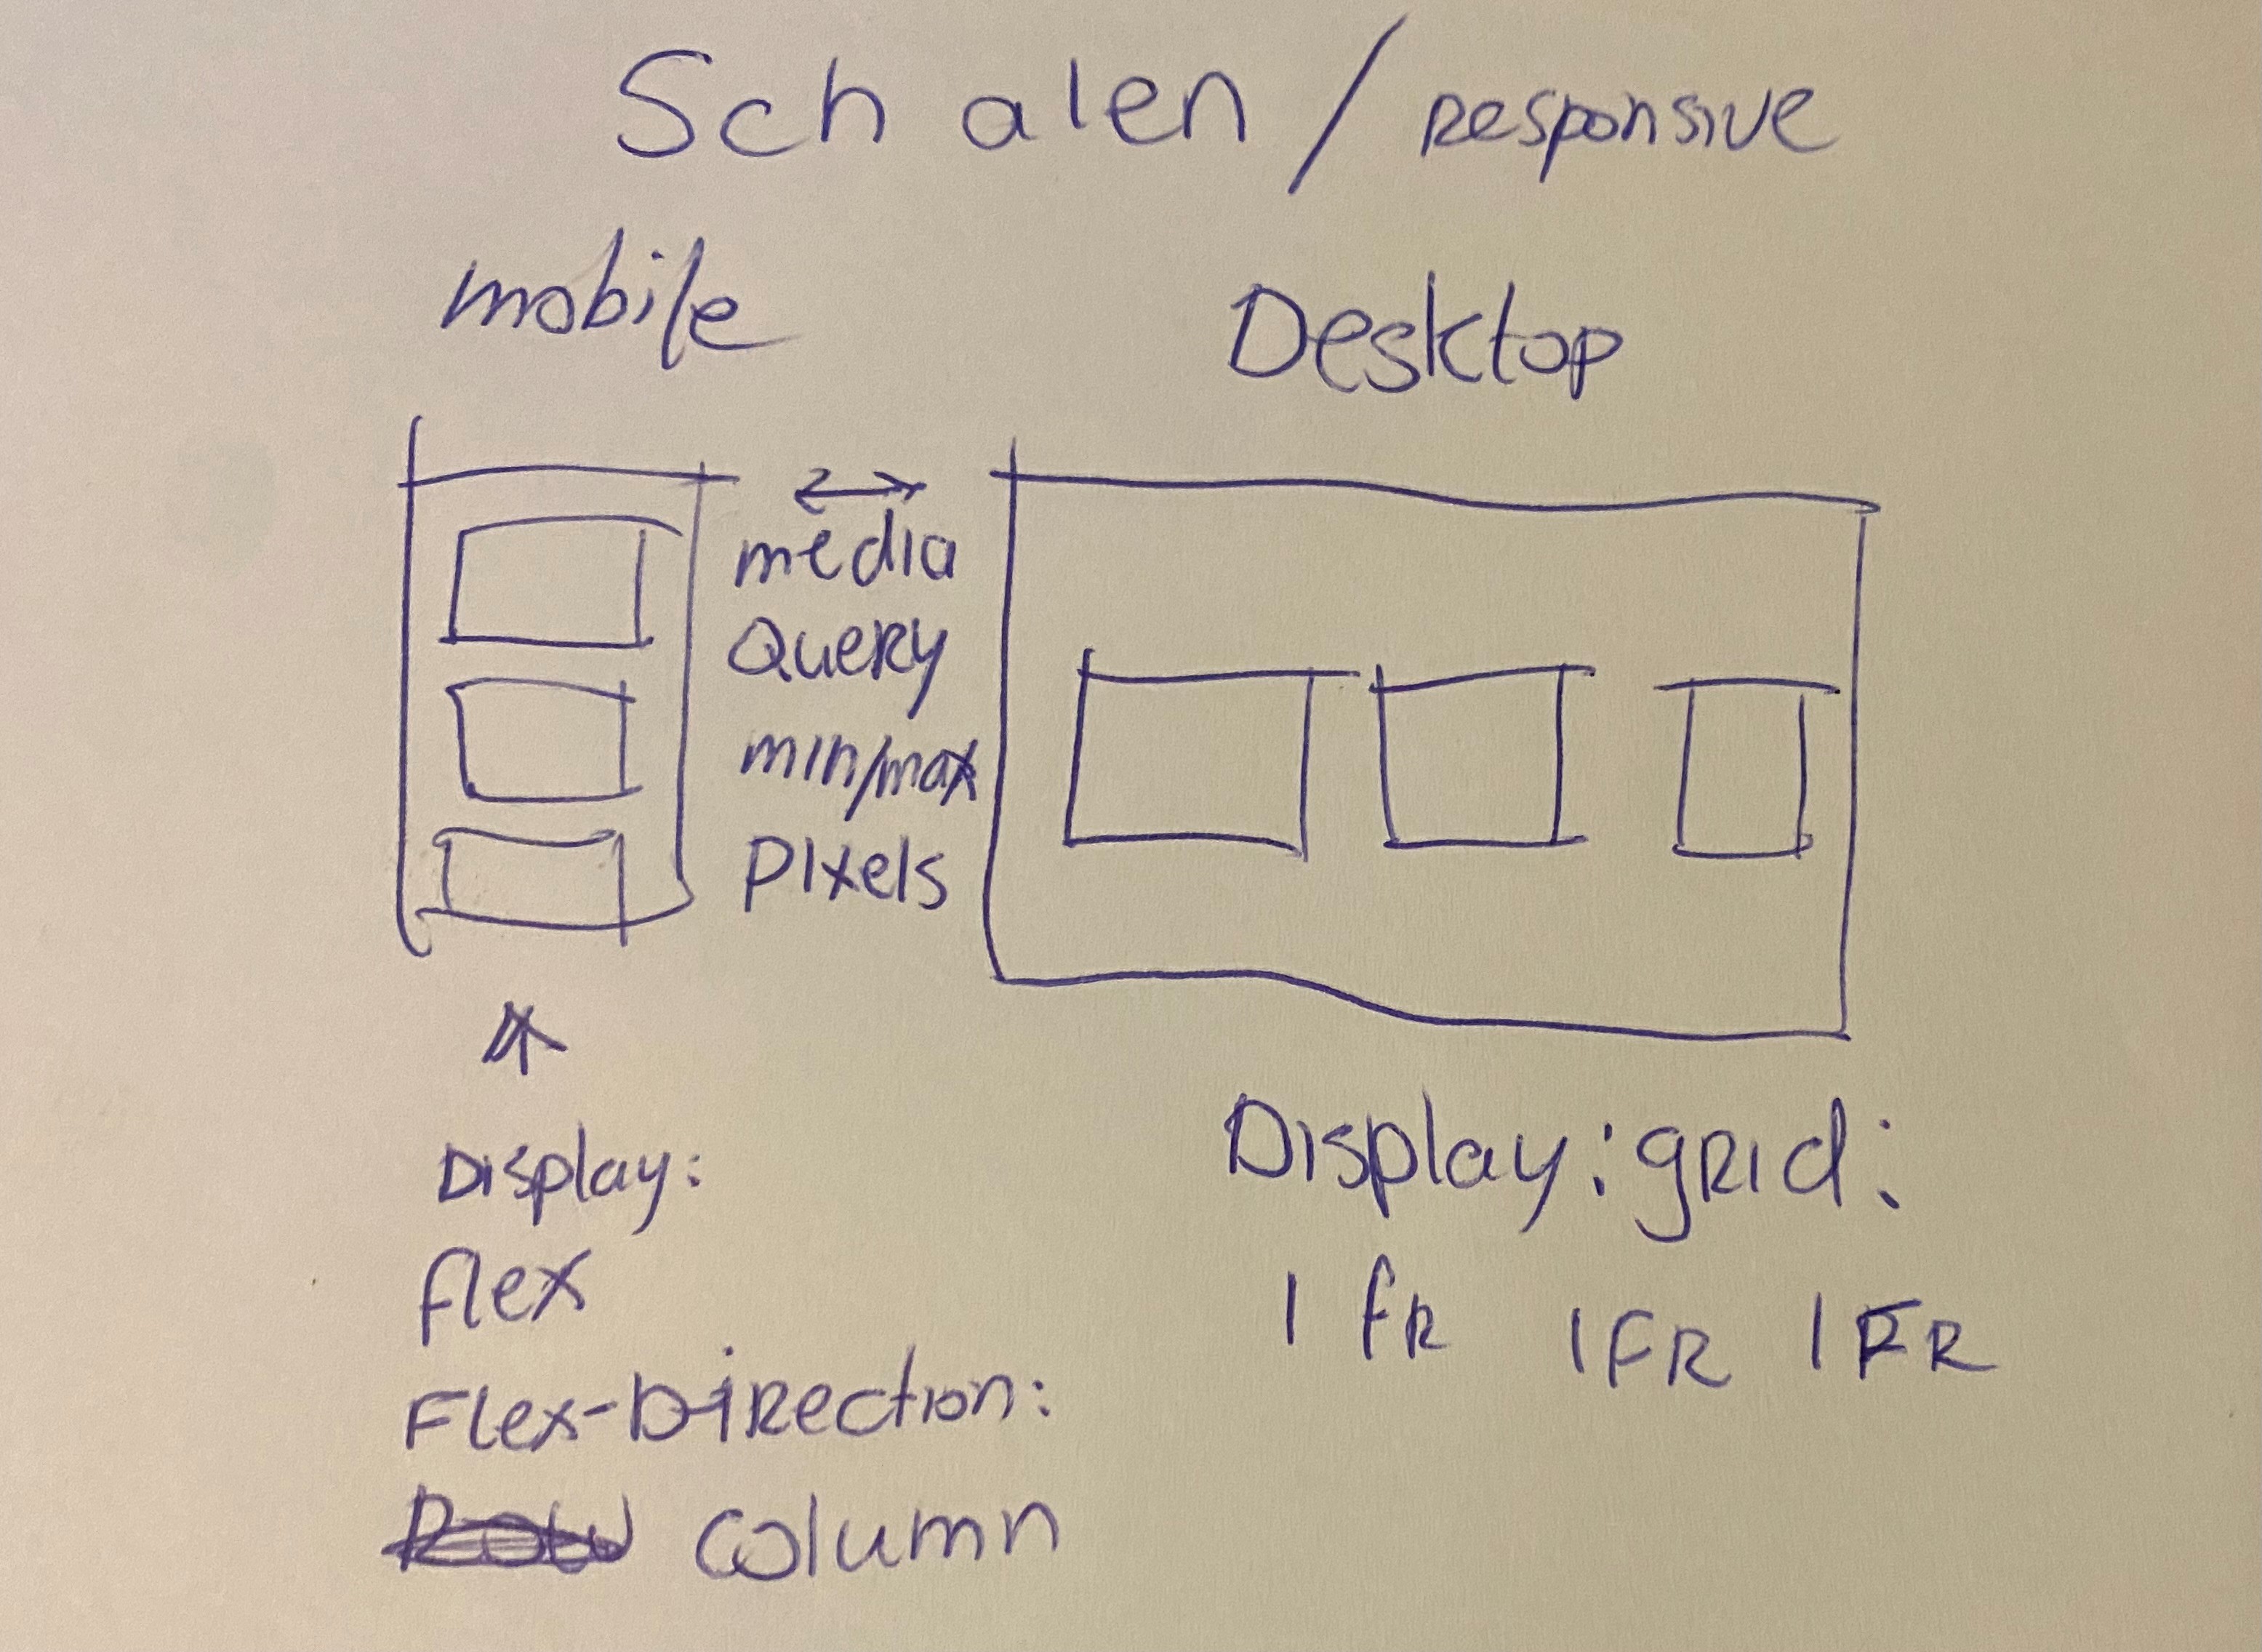 Schalen / Responsive
mobile
Desktop
media
Query
min/max
Pixels
Display:
flex
Flex-Direction:
Row column
Display: grid:
1 fR 1 FR 1 FR